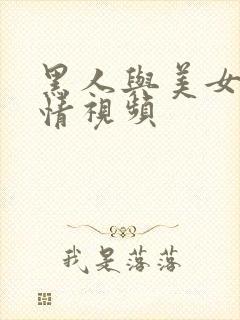 黑人與美女
情視頻
我是落落